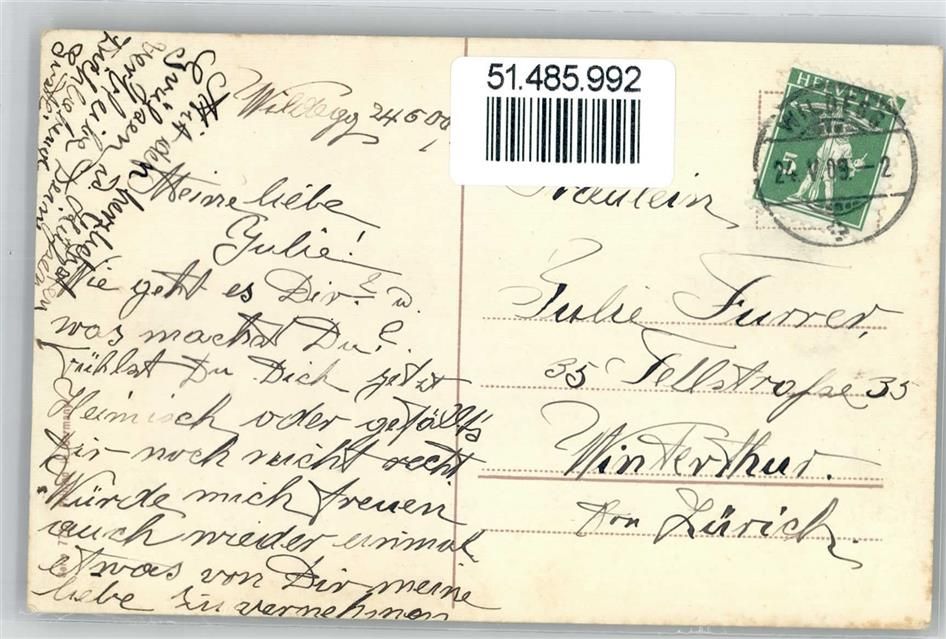 51.485.992
HELVETIA
5
WILDEGG
24 V 09. - 2
Wildegg 24 5 09
Meine liebe
Julie!
Wie geht es Dir? u.
was machst Du?
fühlst Du Dich jetzt
Heimisch oder gefällts
Dir noch nicht recht
Würde mich freuen
auch wieder einmal
etwas von Dir meine
liebe zu vernehmen
Mit den herzlichsten
Grüssen u.
verbleibe Deine
Fräulein
Julie Furrer,
35 Tellstraße 35
Winterthur.
Ktn Zürich.